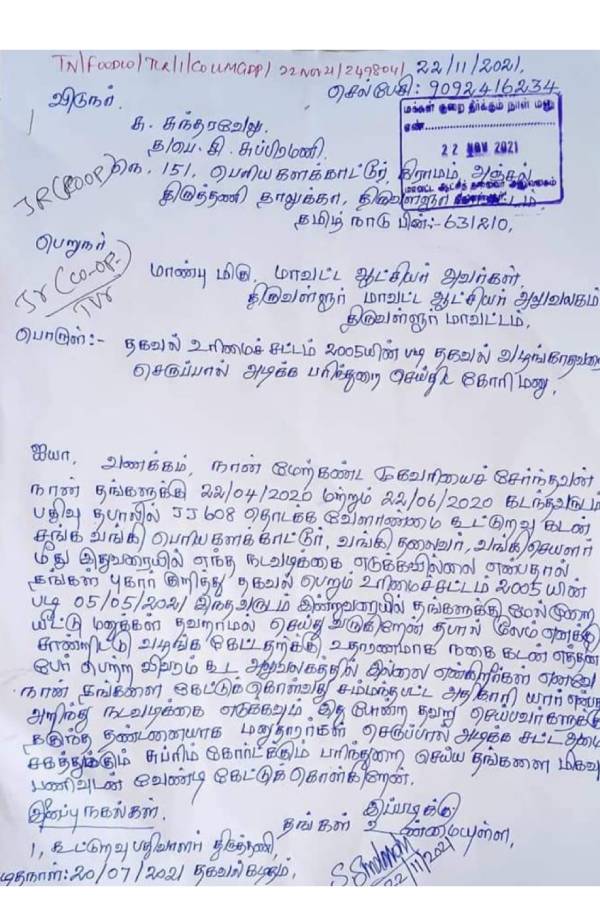 TN/FOOD10/TLR/1/COLLMGDP/22NOV21/249804/ 22/11/2021.
செல்பேசி: 9092416234
விடுநர்.
மக்கள் குறை தீர்க்கும் நாள் மனு
எண்
22 NOV 2021
மாவட்ட ஆட்சித் தலைவர் அலுவலகம்
சு. சுந்தரவேலு
த/பெ. கி சுப்பிரமணி.
JR (COOP)
நெ. 151, பெரியகளக்காட்டூர், கிராமம், அஞ்சல்
திருத்தணி தாலுக்கா, திருவள்ளூர் மாவட்டம்
தமிழ் நாடு பின்:-631210.
பெறுநர்
Jr (CO-OP.)
TVr
மாண்பு மிகு. மாவட்ட ஆட்சியர் அவர்கள்,
திருவள்ளூர் மாவட்ட ஆட்சியர் அலுவலகம்
திருவள்ளூர் மாவட்டம்.
பொருள்:- தகவல் உரிமைச் சட்டம் 2005யின் படி தகவல் வழங்காதவரை
செருப்பால் அடிக்க பரிந்துரை செய்திட கோரி மனு.
ஐயா, வணக்கம், நான் மேற்கண்ட முகவரியைச் சேர்ந்தவன்
நான் தங்களுக்கு 22/04/2020 மற்றும் 22/06/2020 கடந்தவருடம்
பதிவு தபாலில் JJ608 தொடக்க வேளாண்மை கூட்டுறவு கடன்
சங்க வங்கி பெரியகளக்காட்டூர், வங்கி தலைவர், வங்கி செயலர்
மீது இதுவரையில் எந்த நடவடிக்கை எடுக்கவில்லை என்பதால்
தங்கள் புகார் குறித்து தகவல் பெறும் உரிமைச்சட்டம் 2005 யின்
படி 05/05/2021 இந்தவருடம் இன்றுவரையில் தங்களுக்கு மேல்முறை
யீட்டு மனுக்கள் தவறாமல் செய்து வருகிறேன் தபால் மூலம் எனக்கு
சான்றிட்டு வழங்க கேட்டதற்கு உதாரணமாக நகை கடன் எத்தனை
பேர் பெற்ற விவரம் கூட அலுவலகத்தில் இல்லை என்கிறீர்கள் எனவே
நான் தங்களை கேட்டுக்கொள்வது சம்மந்தபட்ட அதிகாரி யார் என்பத
அறிந்து நடவடிக்கை எடுக்கவும் இது போன்ற தவறு செய்பவர்களுக்கு
தகுந்த தண்டனையாக மனுதாரர்கள் செருப்பால் அடிக்க சட்ட அமை
ச்சகத்துக்கும் சுப்ரிம் கோர்ட்க்கும் பரிந்துரை செய்ய தங்களை மிகவும்
பணிவுடன் வேண்டி கேட்டுக் கொள்கிறேன்.
இணைப்பு நகல்கள். இப்படிக்கு.
தங்கள் உண்மையுள்ள,
1, கூட்டுறவு பதிவாளர் திருத்தணி,
22/11/2021
20/07/2021 தகவல் கடிதம்,